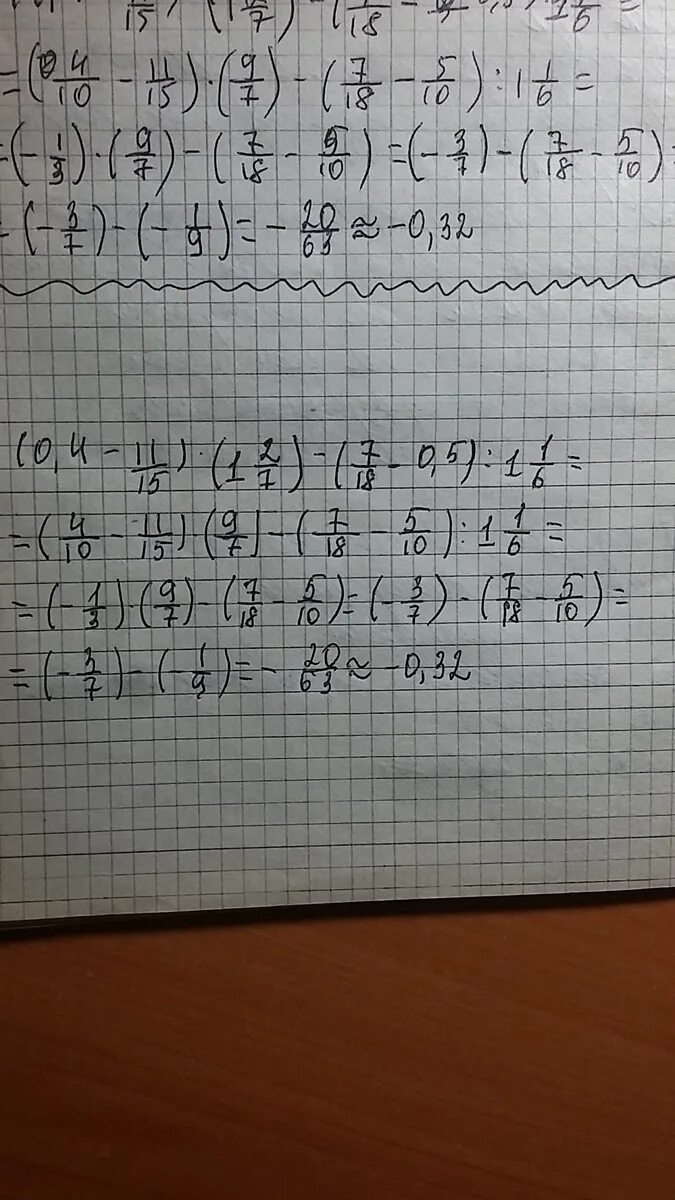 =(0 4/10 - 11/15)·(9/7)-(7/18 - 5/10):1 1/6=
=(-1/3)·(9/7)-(7/18 - 5/10)=(-3/7)-(7/18 - 5/10)=
=(-3/7)-(-1/9)=-20/63≈-0,32
(0,4-11/15)·(1 2/7)-(7/18-0,5):1 1/6=
=(4/10-11/15)·(9/7)-(7/18-5/10):1 1/6=
=(-1/3)·(9/7)-(7/18-5/10)=(-3/7)-(7/18-5/10)=
=(-3/7)-(-1/9)=-20/63≈-0,32